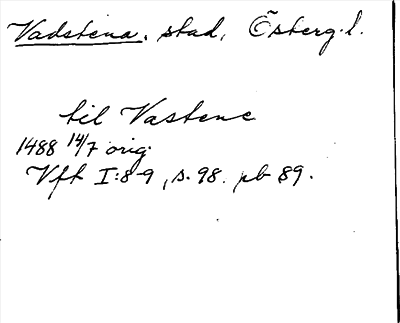 Vadstena, stad, Östergl.
til Vastene
1488 14/7 orig.
Vft I:8-9, s. 98. pb 89.